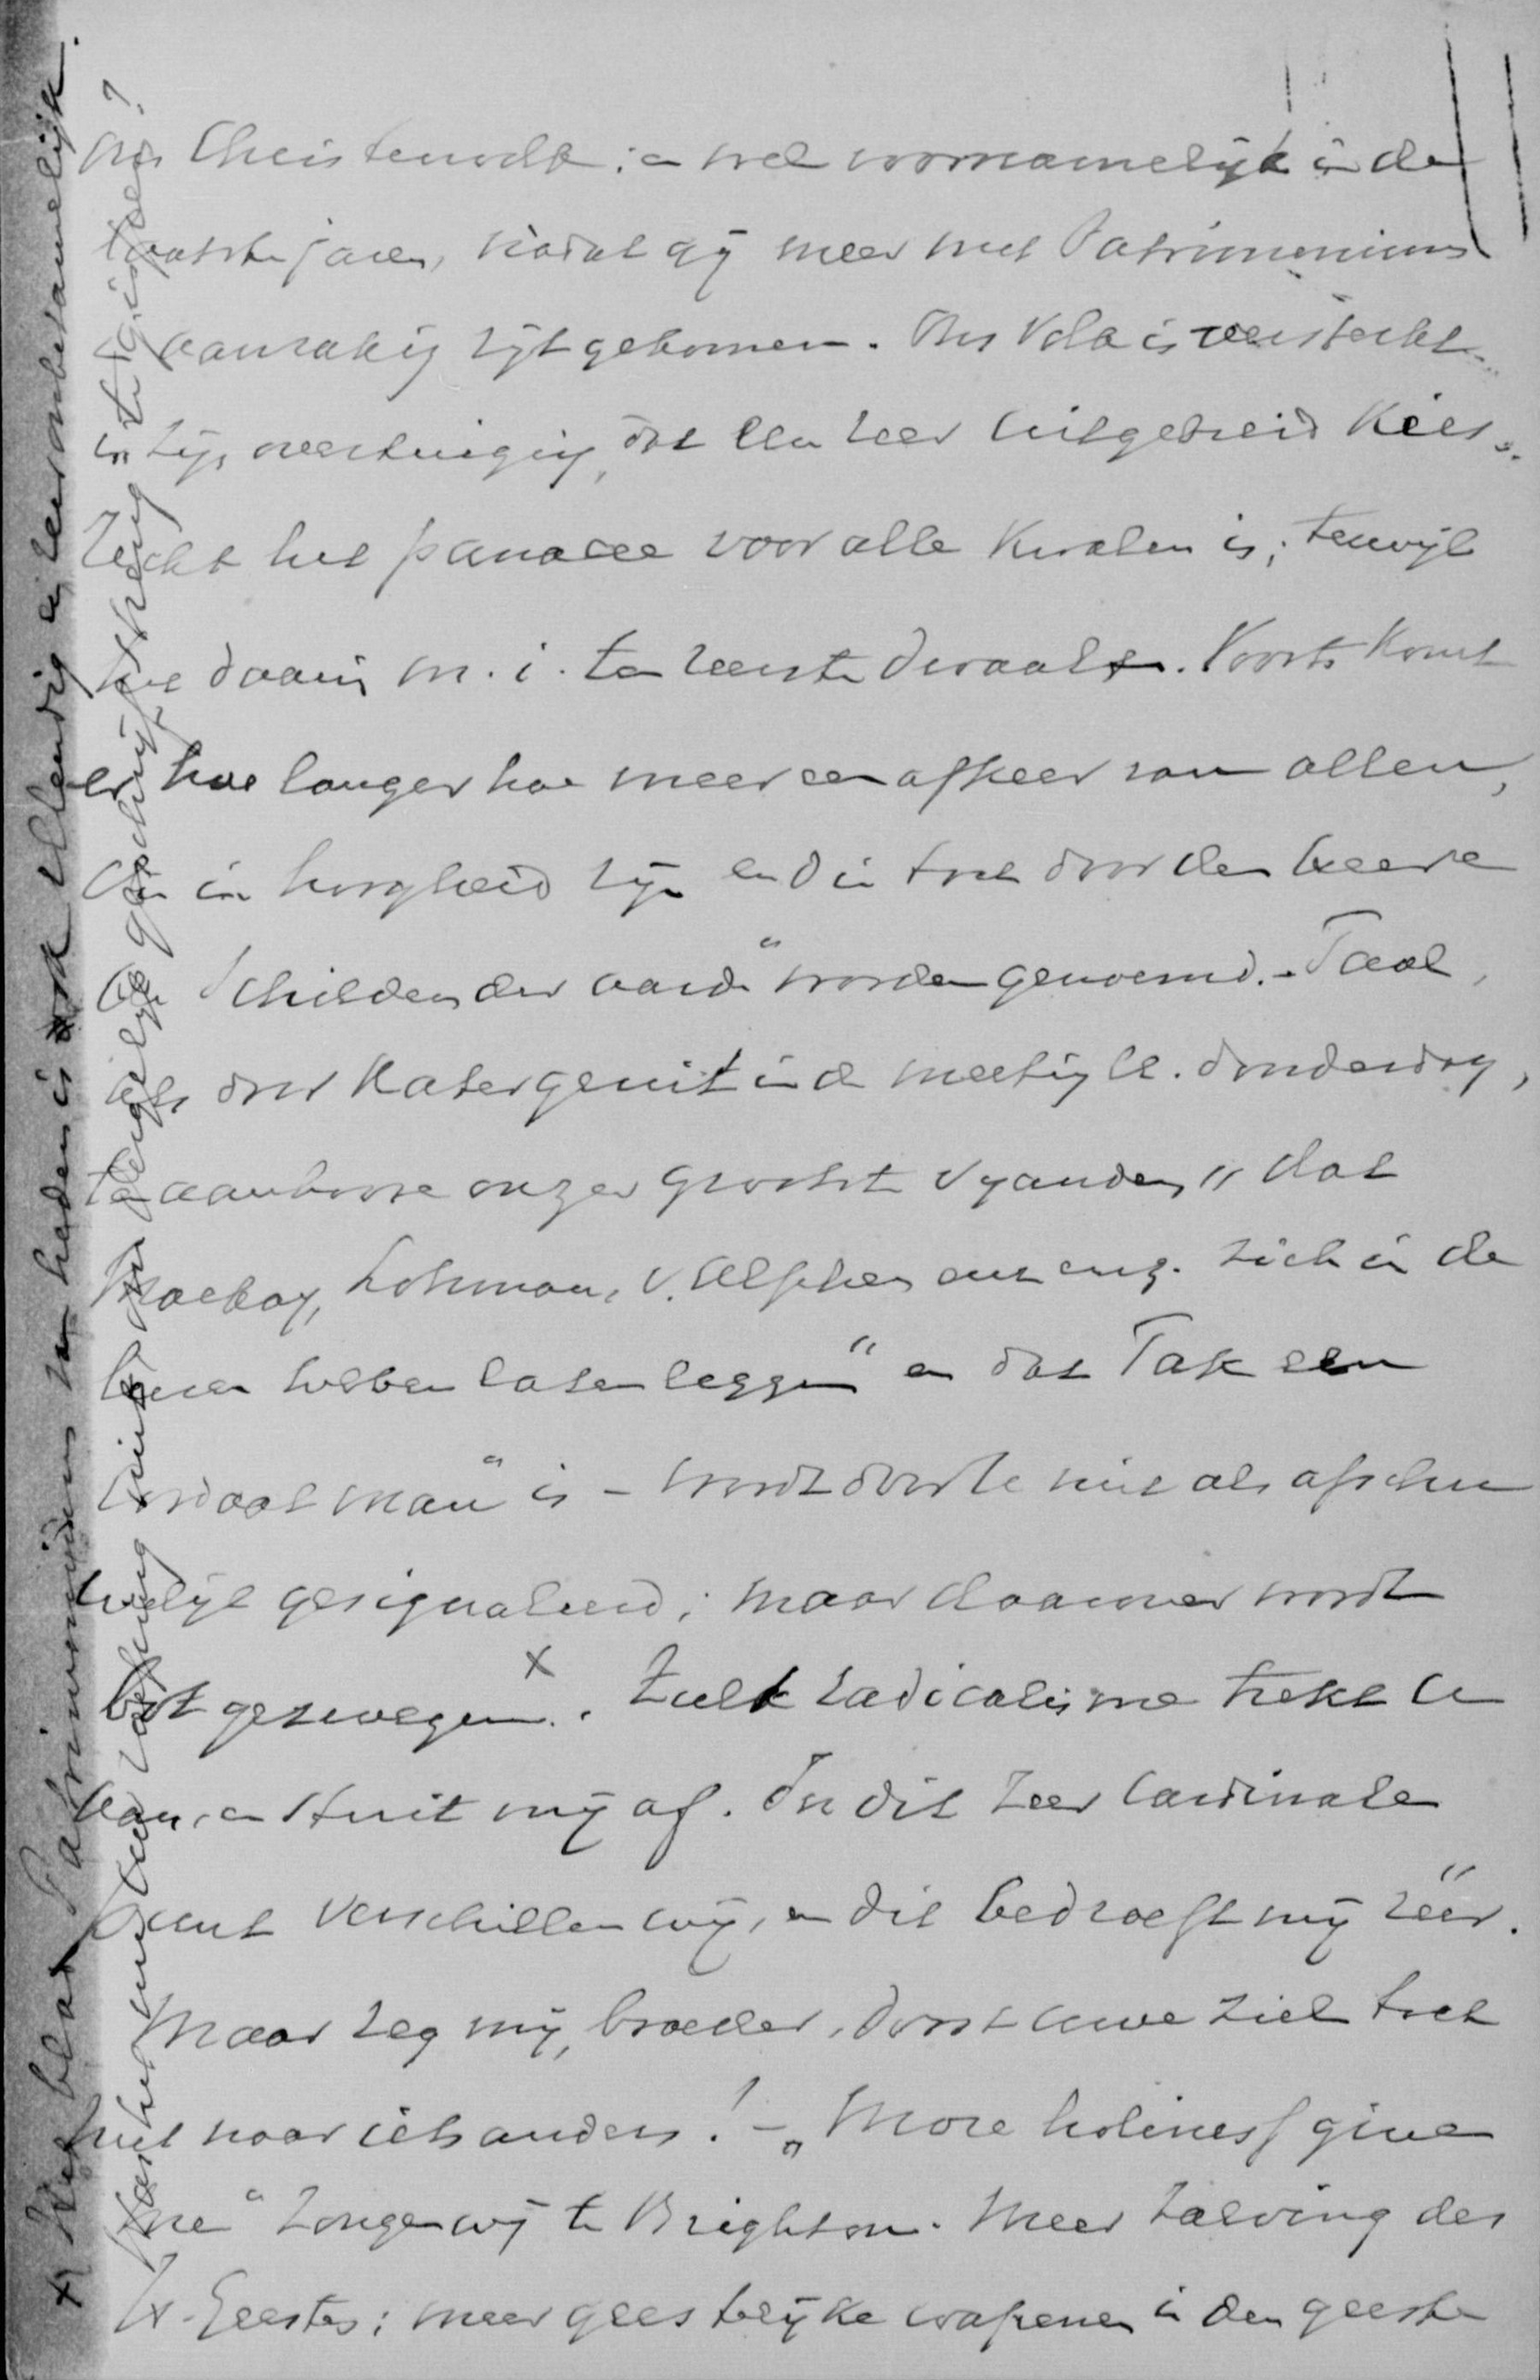 ons Christenvolk; en wel voornamelijk in de
laatste jaren, nadat gij meer met Patrimonium
in aanraking zijt gekomen. Ons Volk is versterkt
in zijn overtuiging, dat een zeer uitgebreid Kies-
recht het panacee voor alle kwalen is; terwijl
het daarin m. i. ten zeerste dwaalt. Voorts komt
er hoe langer hoe meer een afkeer van allen,
die in hoogheid zijn en die toch door den Heere
de Schilden der aarde" worden genoemd. - Taal,
als door Kater geuit in de meeting ll. donderdag,
ten aanhoore onzer grootste vyanden, "dat
Mackay, Lohman, v. Alphen enz. enz. zich in de
luren hebben laten leggen" en dat Tak een
loyaal man" is - wordt door U niet als afschu
welijk gesignaleerd; maar daarover wordt
bot gezwegen. x Zulk radicalisme trekt U
aan, en stuit mij af. In dit zeer cardinale
punt verschillen wij, en dit bedroeft mij zéér.
Maar zeg mij, broeder, dorst uwe ziel toch
niet naar iets anders! - „More holiness give
me" zongen wij te Brighton. Meer zalving des
H. Geestes; meer geestelijke wapenen in den geeste
x Het blad Patrimonium van heden is ook ellendig en zeer onbetamelijk.